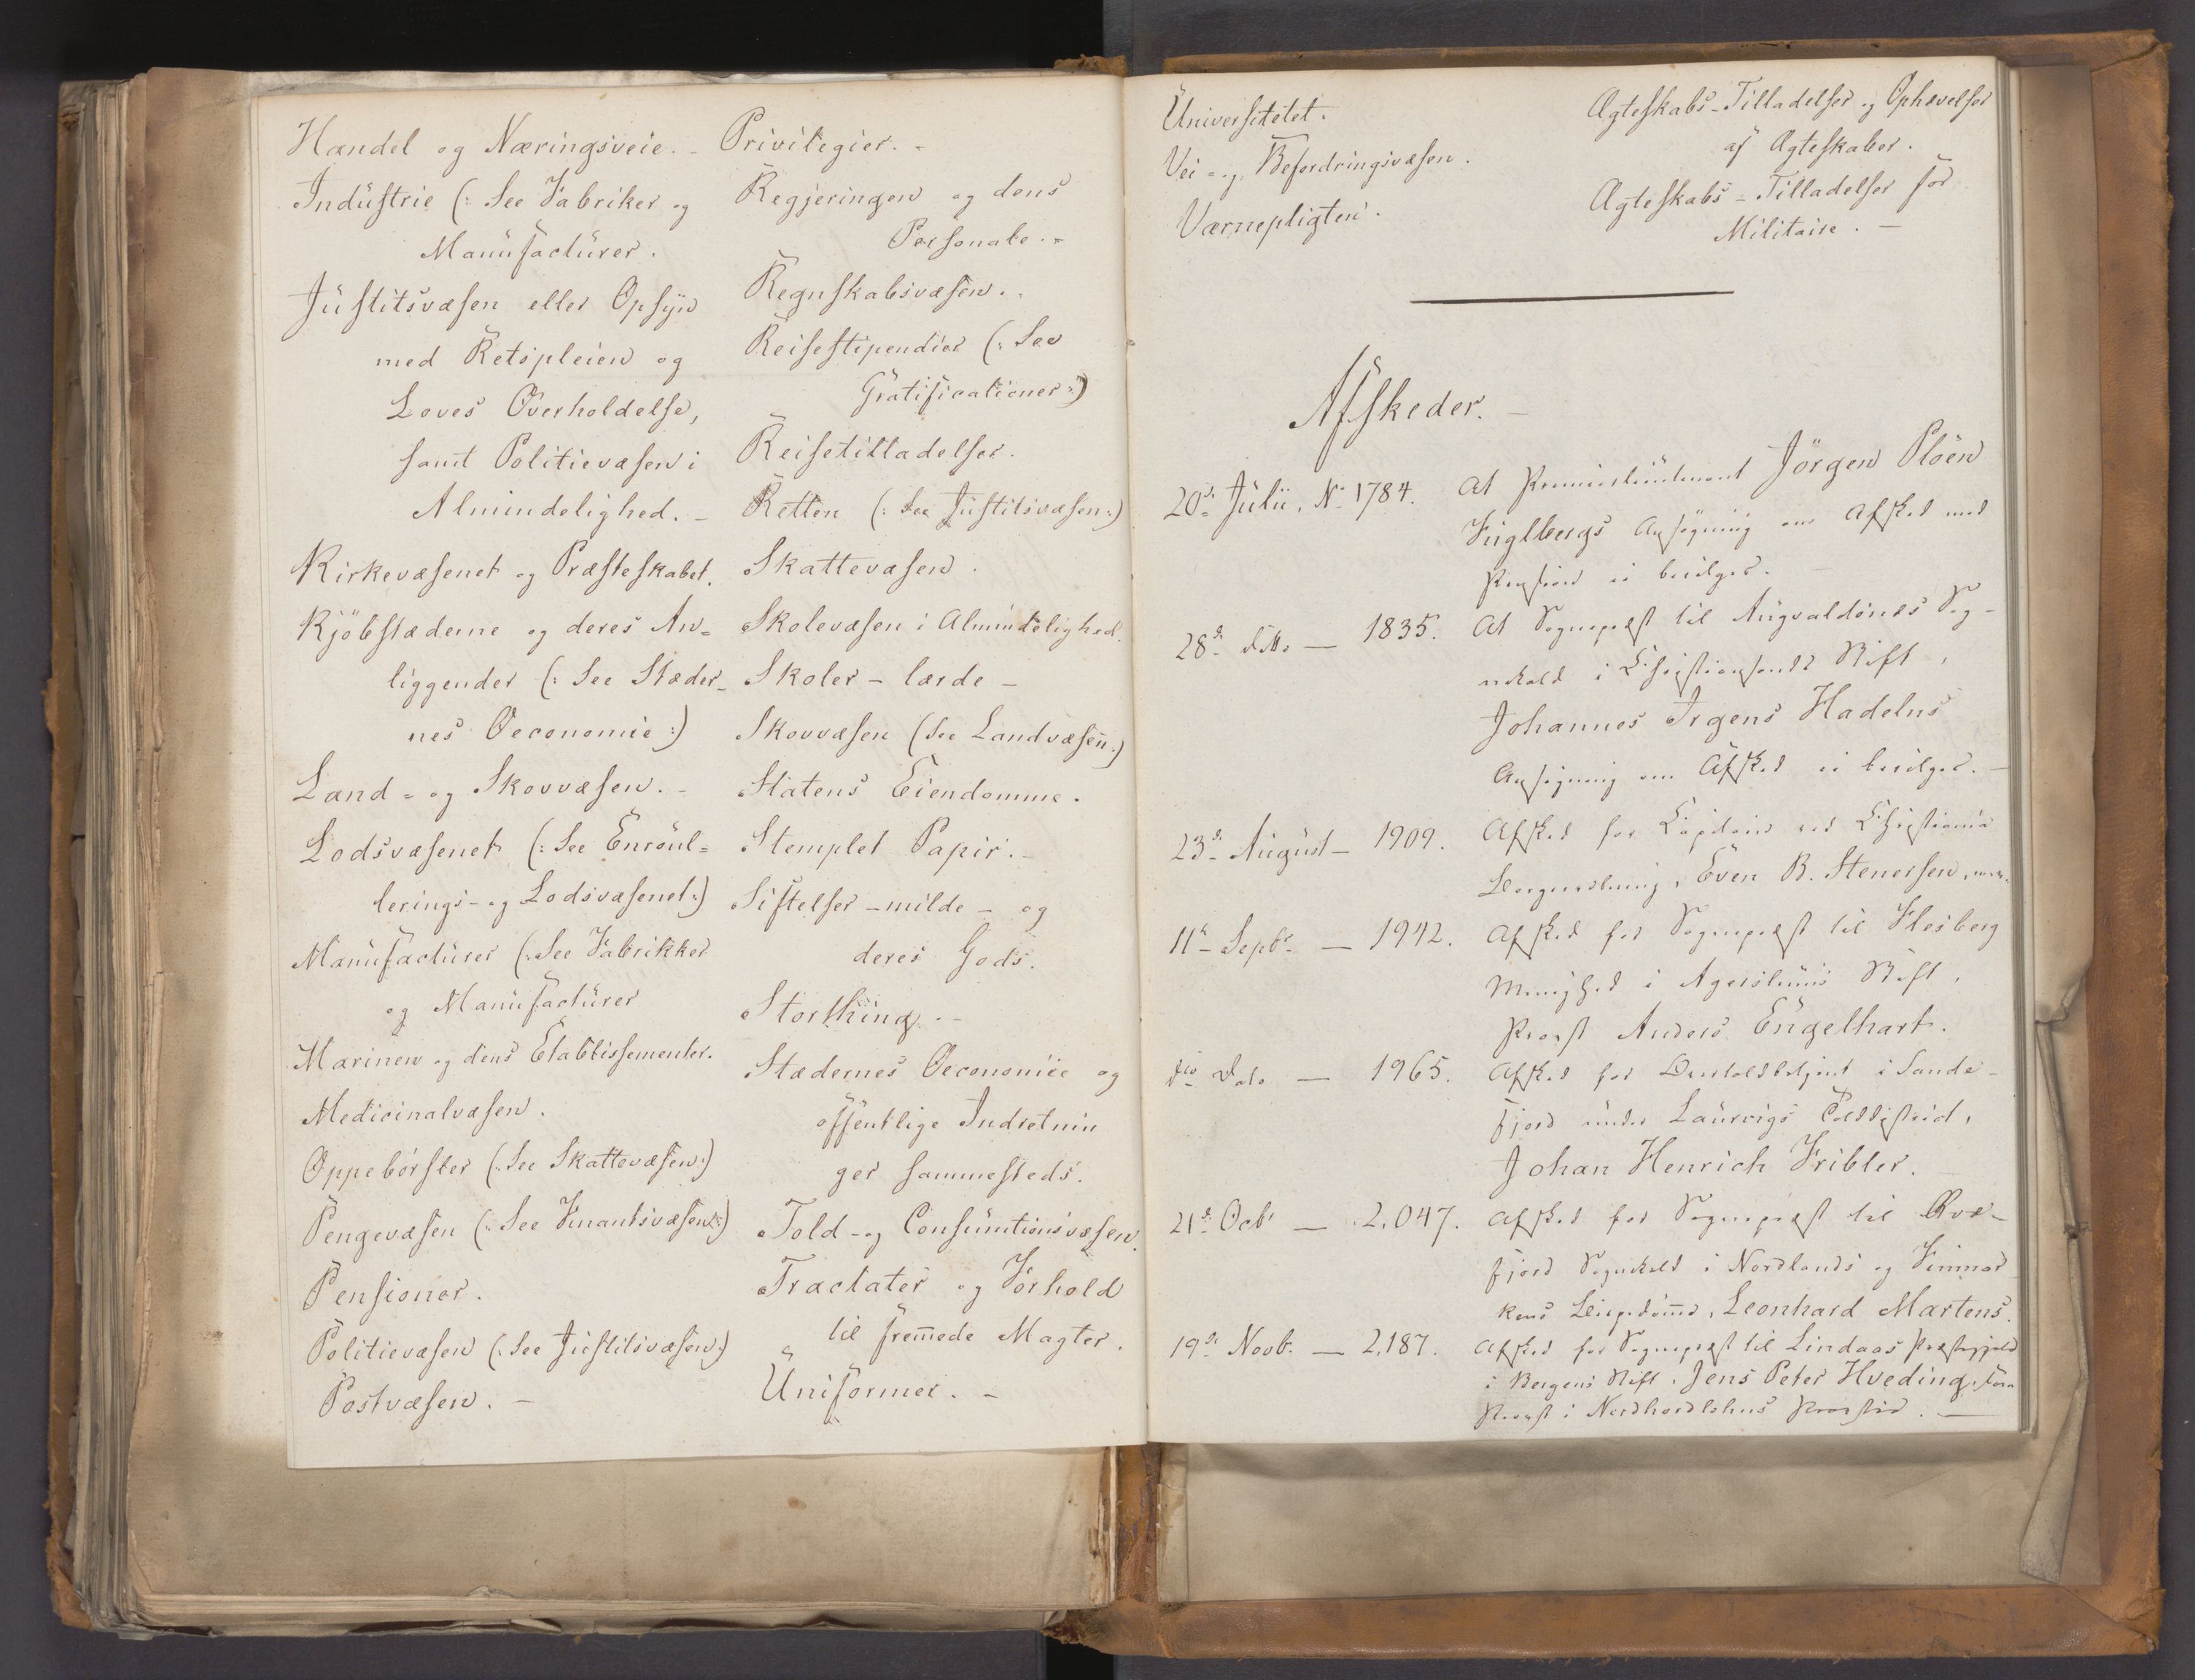 Handel og Næringsveie. -
Industrie (: See Fabriker og
Manufacturer.
Justitsvæsen eller Opsyn
med Retspleien og
Loves Overholdelse,
samt Politievæsen i
Almindelighed. -
Kirkevæsenet og Præsteskabet.
Kjöbstæderne og deres An-
liggender (: See Stæder-
nes Oeconomie :)
Land- og Skovvæsen. -
Lodsvæsenet (: See Enroul-
lerings- og Lodsvæsenet :)
Manufacturer (: See Fabrikker
og Manufacturer
Marinen og dens Etablissementer.
Medicinalvæsen.
Oppebörsler (: See Skattevæsen :)
Pengevæsen (: See Finantsvæsen :)
Pensioner.
Politievæsen (: See Justitsvæsen :)
Postvæsen. -
Privilegier. -
Regjeringen og dens
Personale. -
Regnskabsvæsen. -
Reisestipendier (: See
Gratificationer :)
Reisetilladelser.
Retten (: See Justitsvæsen :)
Skattevæsen.
Skolevæsen i Almindelighed.
Skoler - lærde -
Skovvæsen (See Landvæsen :)
Statens Eiendomme.
Stemplet Papir. -
Stiftelser - milde - og
deres Gods.
Storthing. -
Stædernes Oeconomie og
offentlige Indretnin
ger sammesteds.
Told- og Consumtionsvæsen.
Tractater og Forhold
til fremede Magter.
Uniformer. -
Universitetet.
Vei- og Befordringsvæsen.
Værnepligten.
Ægteskabs-Tilladelser og Ophævelser
af Ægteskaber.
Ægteskabs-Tilladelser for
Militaire. -
Afskeder. -
20de Julii. No 1784. At Premierlieutenant Jörgen Plöen
Fuglbergs Ansögning om Afsked med
Pension ei bevilges. -
28de dito - 1835. At Sognepræst til Augvaldsnæs Sog-
nekald i Christiansands Stift,
Johannes Irgens Hadelns
Ansögning om Afsked ei bevilges. -
23de August - 1909. Afsked for Capitain ved Christiania
Borgervæbning, Even B. Stenersen,
11te Septbr - 1942. Afsked for Sognepræst til Flesberg
Menighed i Agershuus Stift,
Provst Anders Engelhart.
dito Dato - 1965. Afsked for Toldbetjent i Sande-
fjord under Laurvigs Tolddistrict,
Johan Henrich Fribler.
21de Octbr - 2,047. Afsked for Sognepræst til Qvæ-
fjord Sognekald i Nordlands og Finmar
kens Bispedömme, Leonhard Martens.
19de Novbr. - 2,187. Afsked for Sognepræst til Lindaas Præstegjeld
i Bergens Stift, Jens Peter Hveding,
Provst i Nordhordlehns Provstie. -